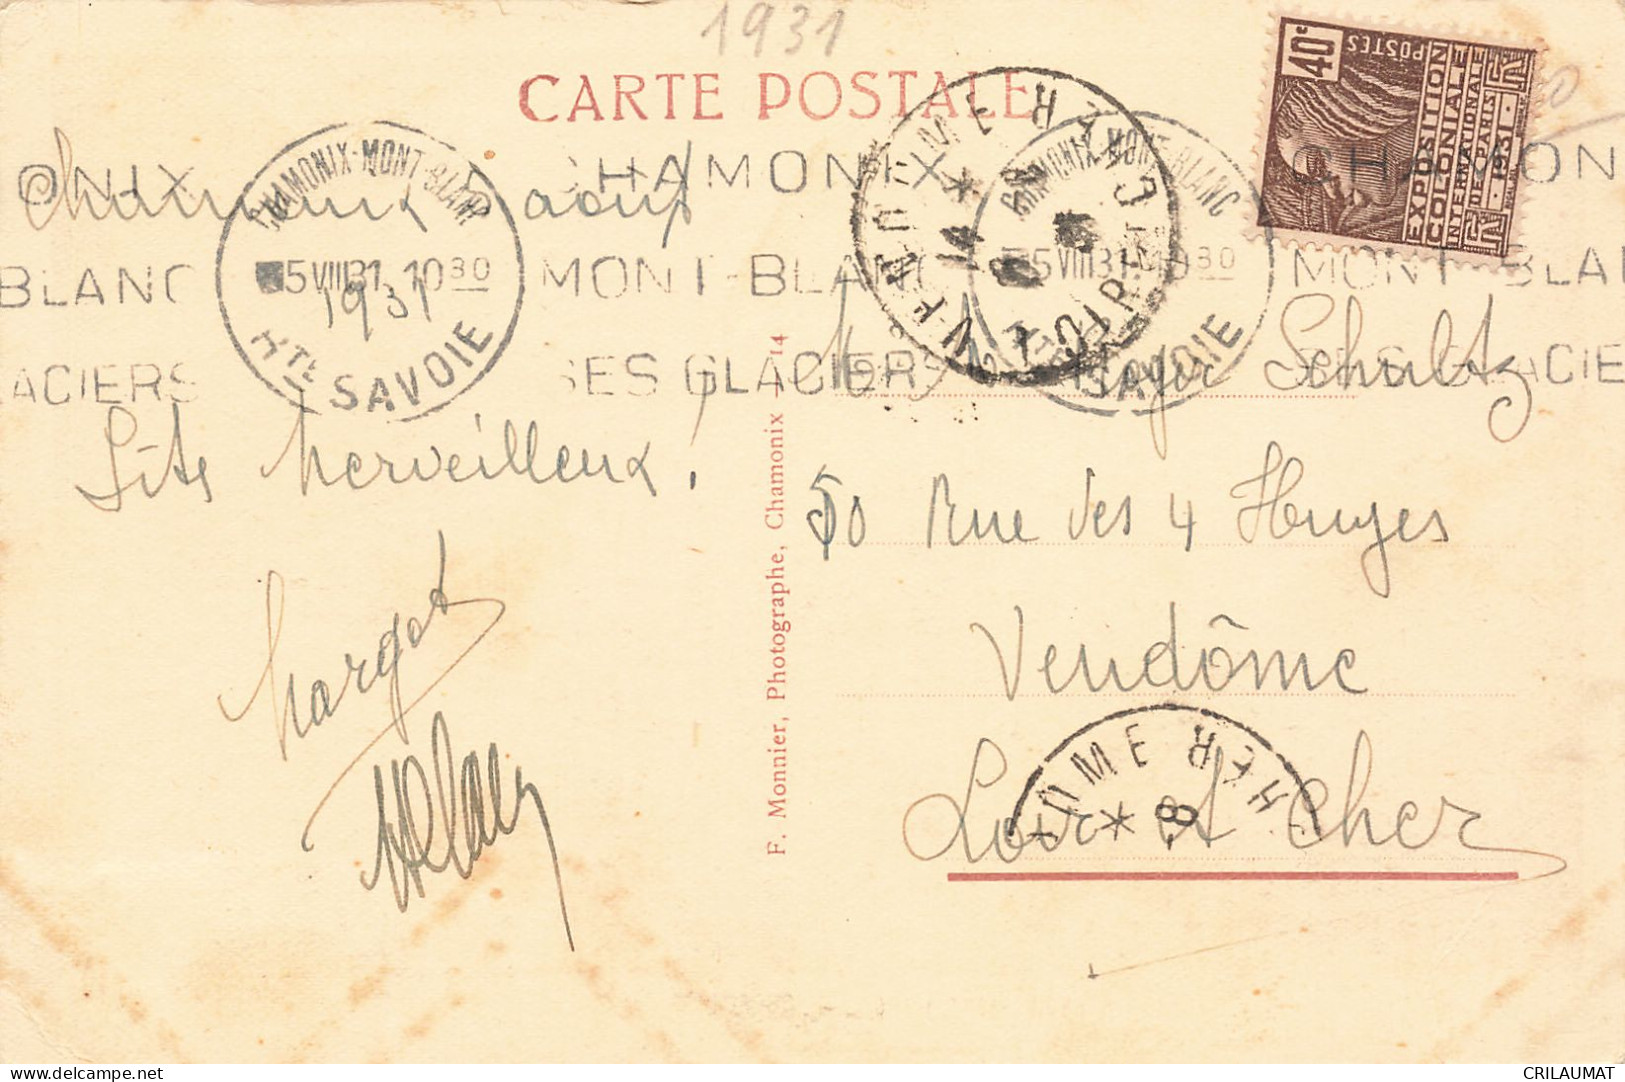 1931
CARTE POSTALE
40c
POSTES
EXPOSITION
COLONIALE
INTERNATIONALE
DE PARIS
1931
ONIX
CHAMONIX
CHAMON
BLANC
MONT-BLANC
MONT-BLA
ACIERS
SES GLACIERS
GLACIE
CHAMONIX-MONT-BLANC
5 VIII 31 10 30
Hte SAVOIE
CHAMONIX-MONT-BLANC
5 VIII 31
30
SAVOIE
VENDOME
LOIR ET CHER
14
Chamonix août
1931
Site merveilleux !
Margot
Roger Schultz
50 Rue des 4 Huyes
Vendôme
Loir et Cher
DOME R
CHER
8
F. Monnier, Photographe, Chamonix — 14
delcampe.net
CRILAUMAT